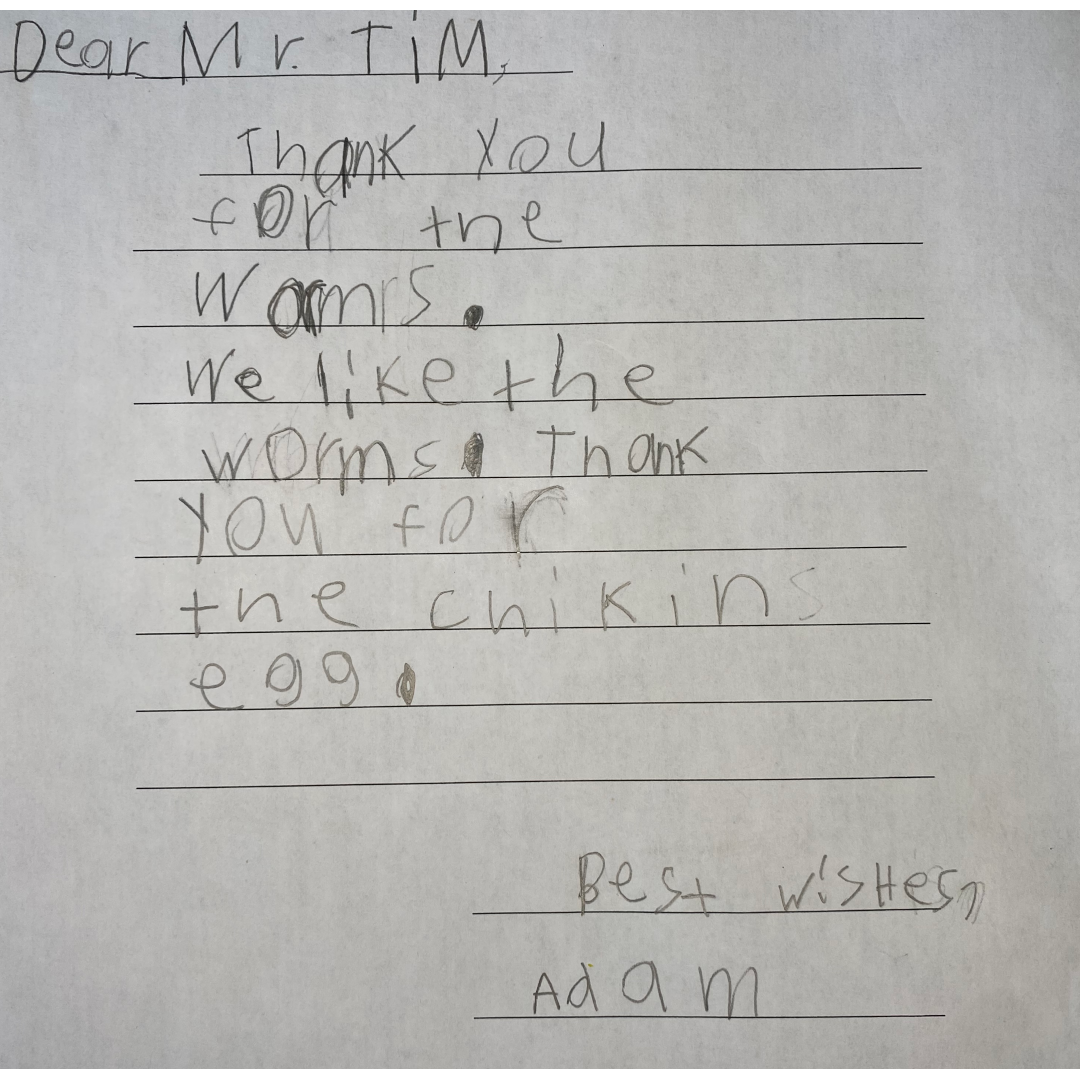 Dear Mr. TiM,
Thank You
for the
Wamrs.
We like the
worms. Thank
you for
the chikins
egg.
Best wisHes,
Adam